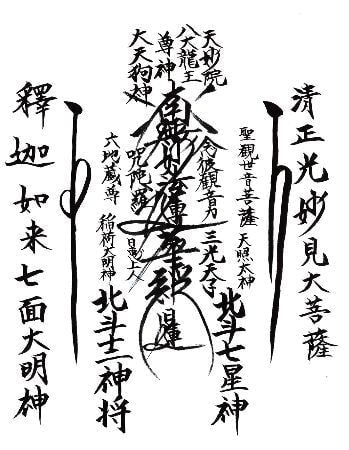 清正光妙見大菩薩
天妙院
八大龍王
尊神
大天狗神
聖観世音菩薩
天照太神
念彼観音力
三光天子
北斗七星神
南無妙法蓮華経
日蓮
陀羅
日朗上人
六地蔵尊
稲荷大明神
北斗十二神将
釋迦如来七面大明神